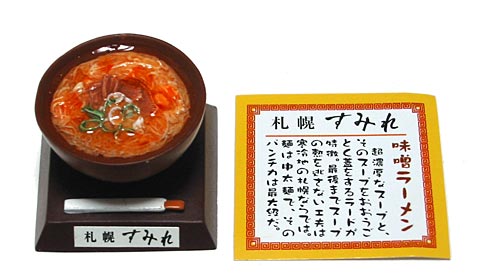 札幌 すみれ
札幌 すみれ
味噌ラーメン
超濃厚なスープと、
そのスープをおおうご
とく蓋をするラードが
特徴。最後までスープ
の熱を逃さない工夫は
寒冷地の札幌ならでは。
麺は中太麺で、その
パンチ力は最大級だ。